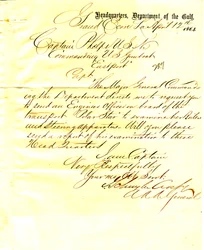 Headquarters, Department of the Gulf,
Grand Ecore La April 12th 1864
Captain Phelps U.S.N.
Commanding U.S. Gunboat
Eastport
Capt
The Major General Command-
ing the Department directs me to request you
to send an Engineer Officer on board of the
transport "Polar Star" to examine her Boilers
and Steering apparatus. Will you please
send a report of his examination to these
Head Quarters
I am Captain
Very Respectfully
Your